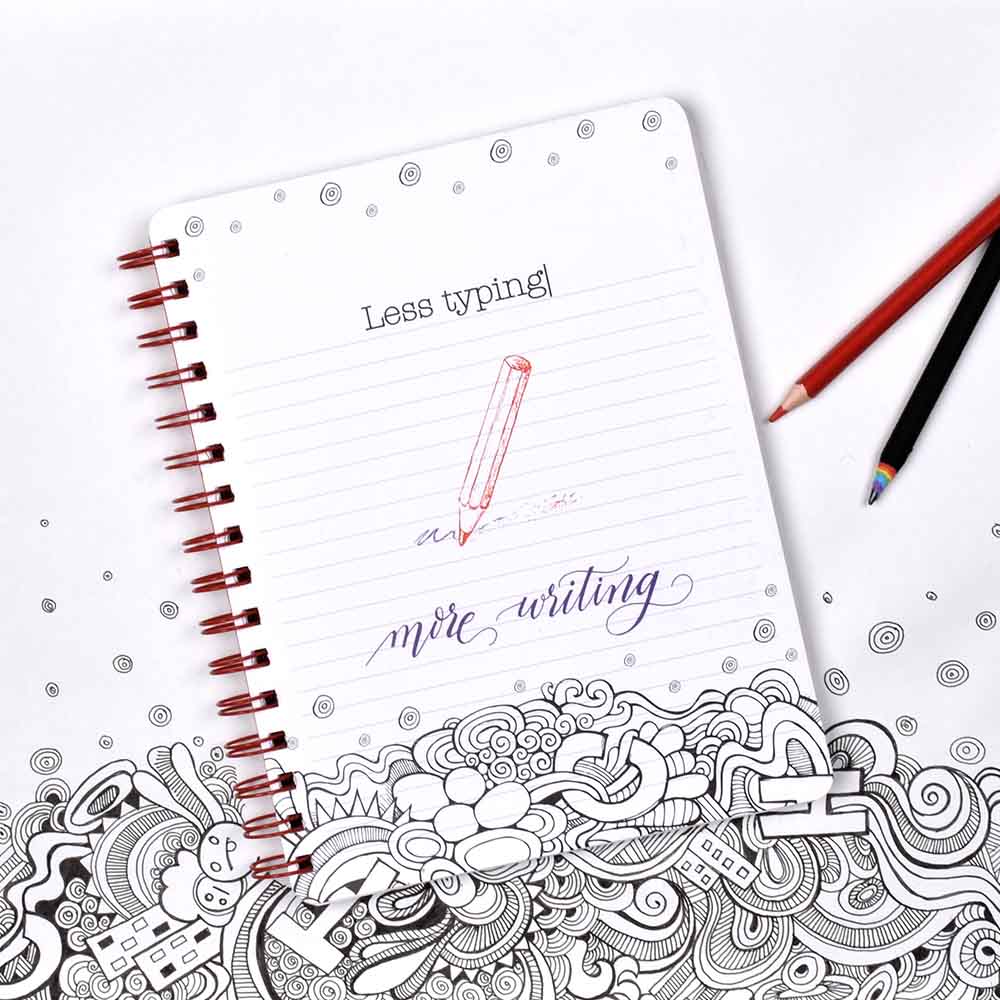 Less typing
more writing